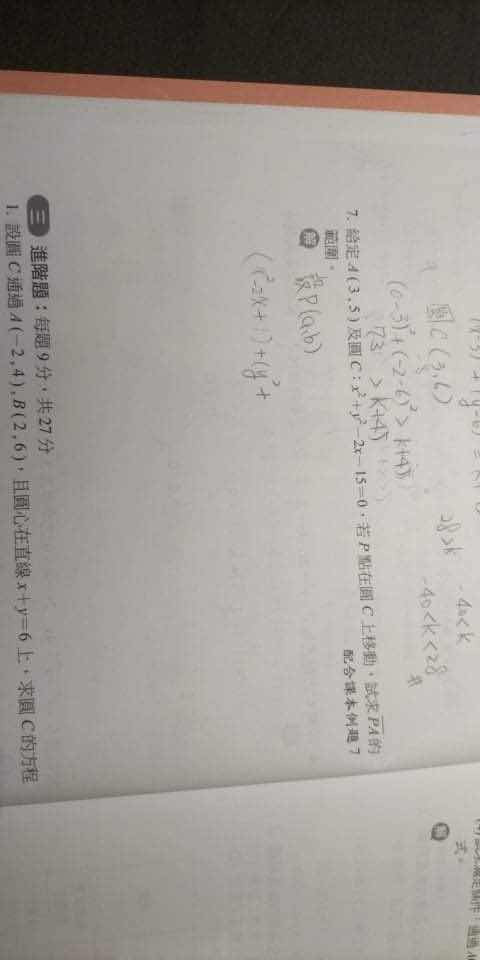 圓C(3,6)
(0-3)²+(-2-6)²>k+45
73 > k+45
28>k
-40<k
-40<k<28
7. 給定 A(3,5) 及圓 C:x²+y²-2x-15=0,若 P 點在圓 C 上移動,試求 PA 的
範圍。
配合課本例題 7
解
設P(a,b)
(x²-2x+1)+(y²+
三 進階題:每題 9 分,共 27 分
1. 設圓 C 通過 A(-2,4),B(2,6),且圓心在直線 x+y=6 上,求圓 C 的方程
式。
解